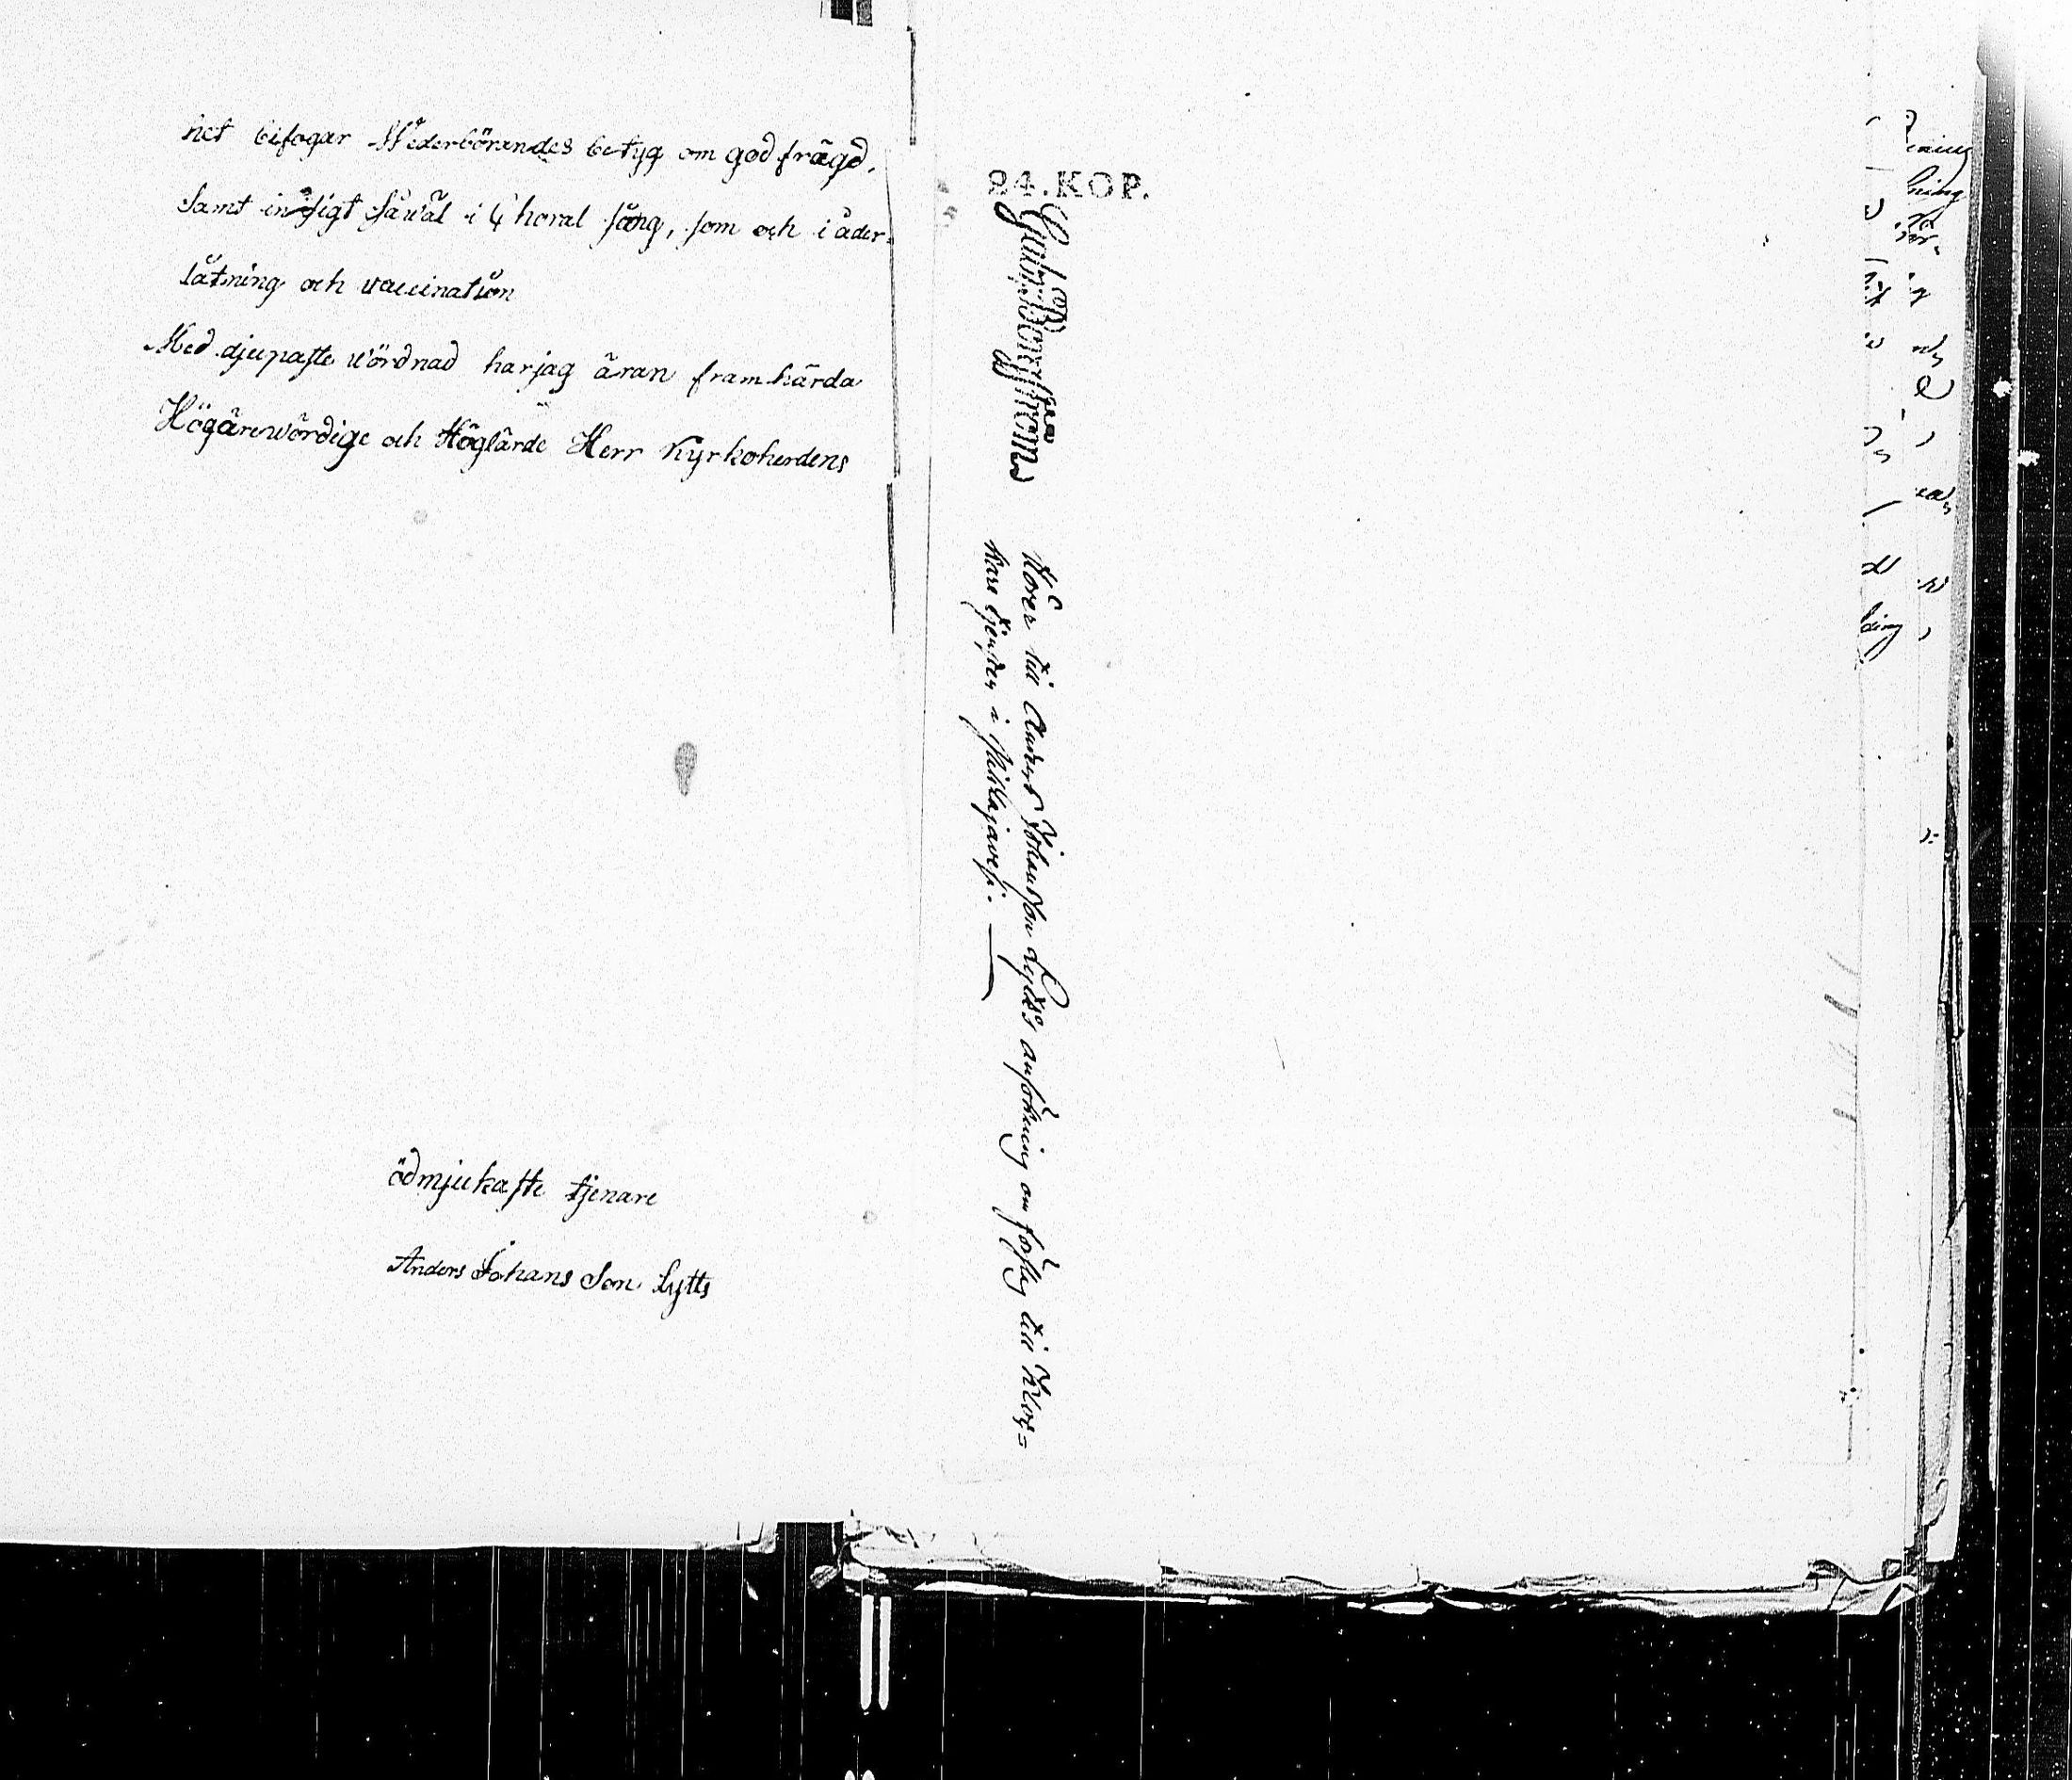 het bifogar Wederbörandes betyg om god frägd,
samt insigt såwäl i Choral sång, som och i åder-
låtning och vaccination
Med djupaste wördnad har jag äran framhärda
Högärewördige och Höglärde Herr Kyrkoherdens
ödmjukaste tjenare
Anders Johans Son Lytts
24. KOP.
Hörer till Anders Johansson Lytts ansökning om förslag till Kloc=
kare tjensten i Pihlajavesi.